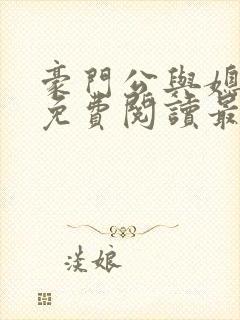 豪門公與媳
免費閱讀最
淡娘